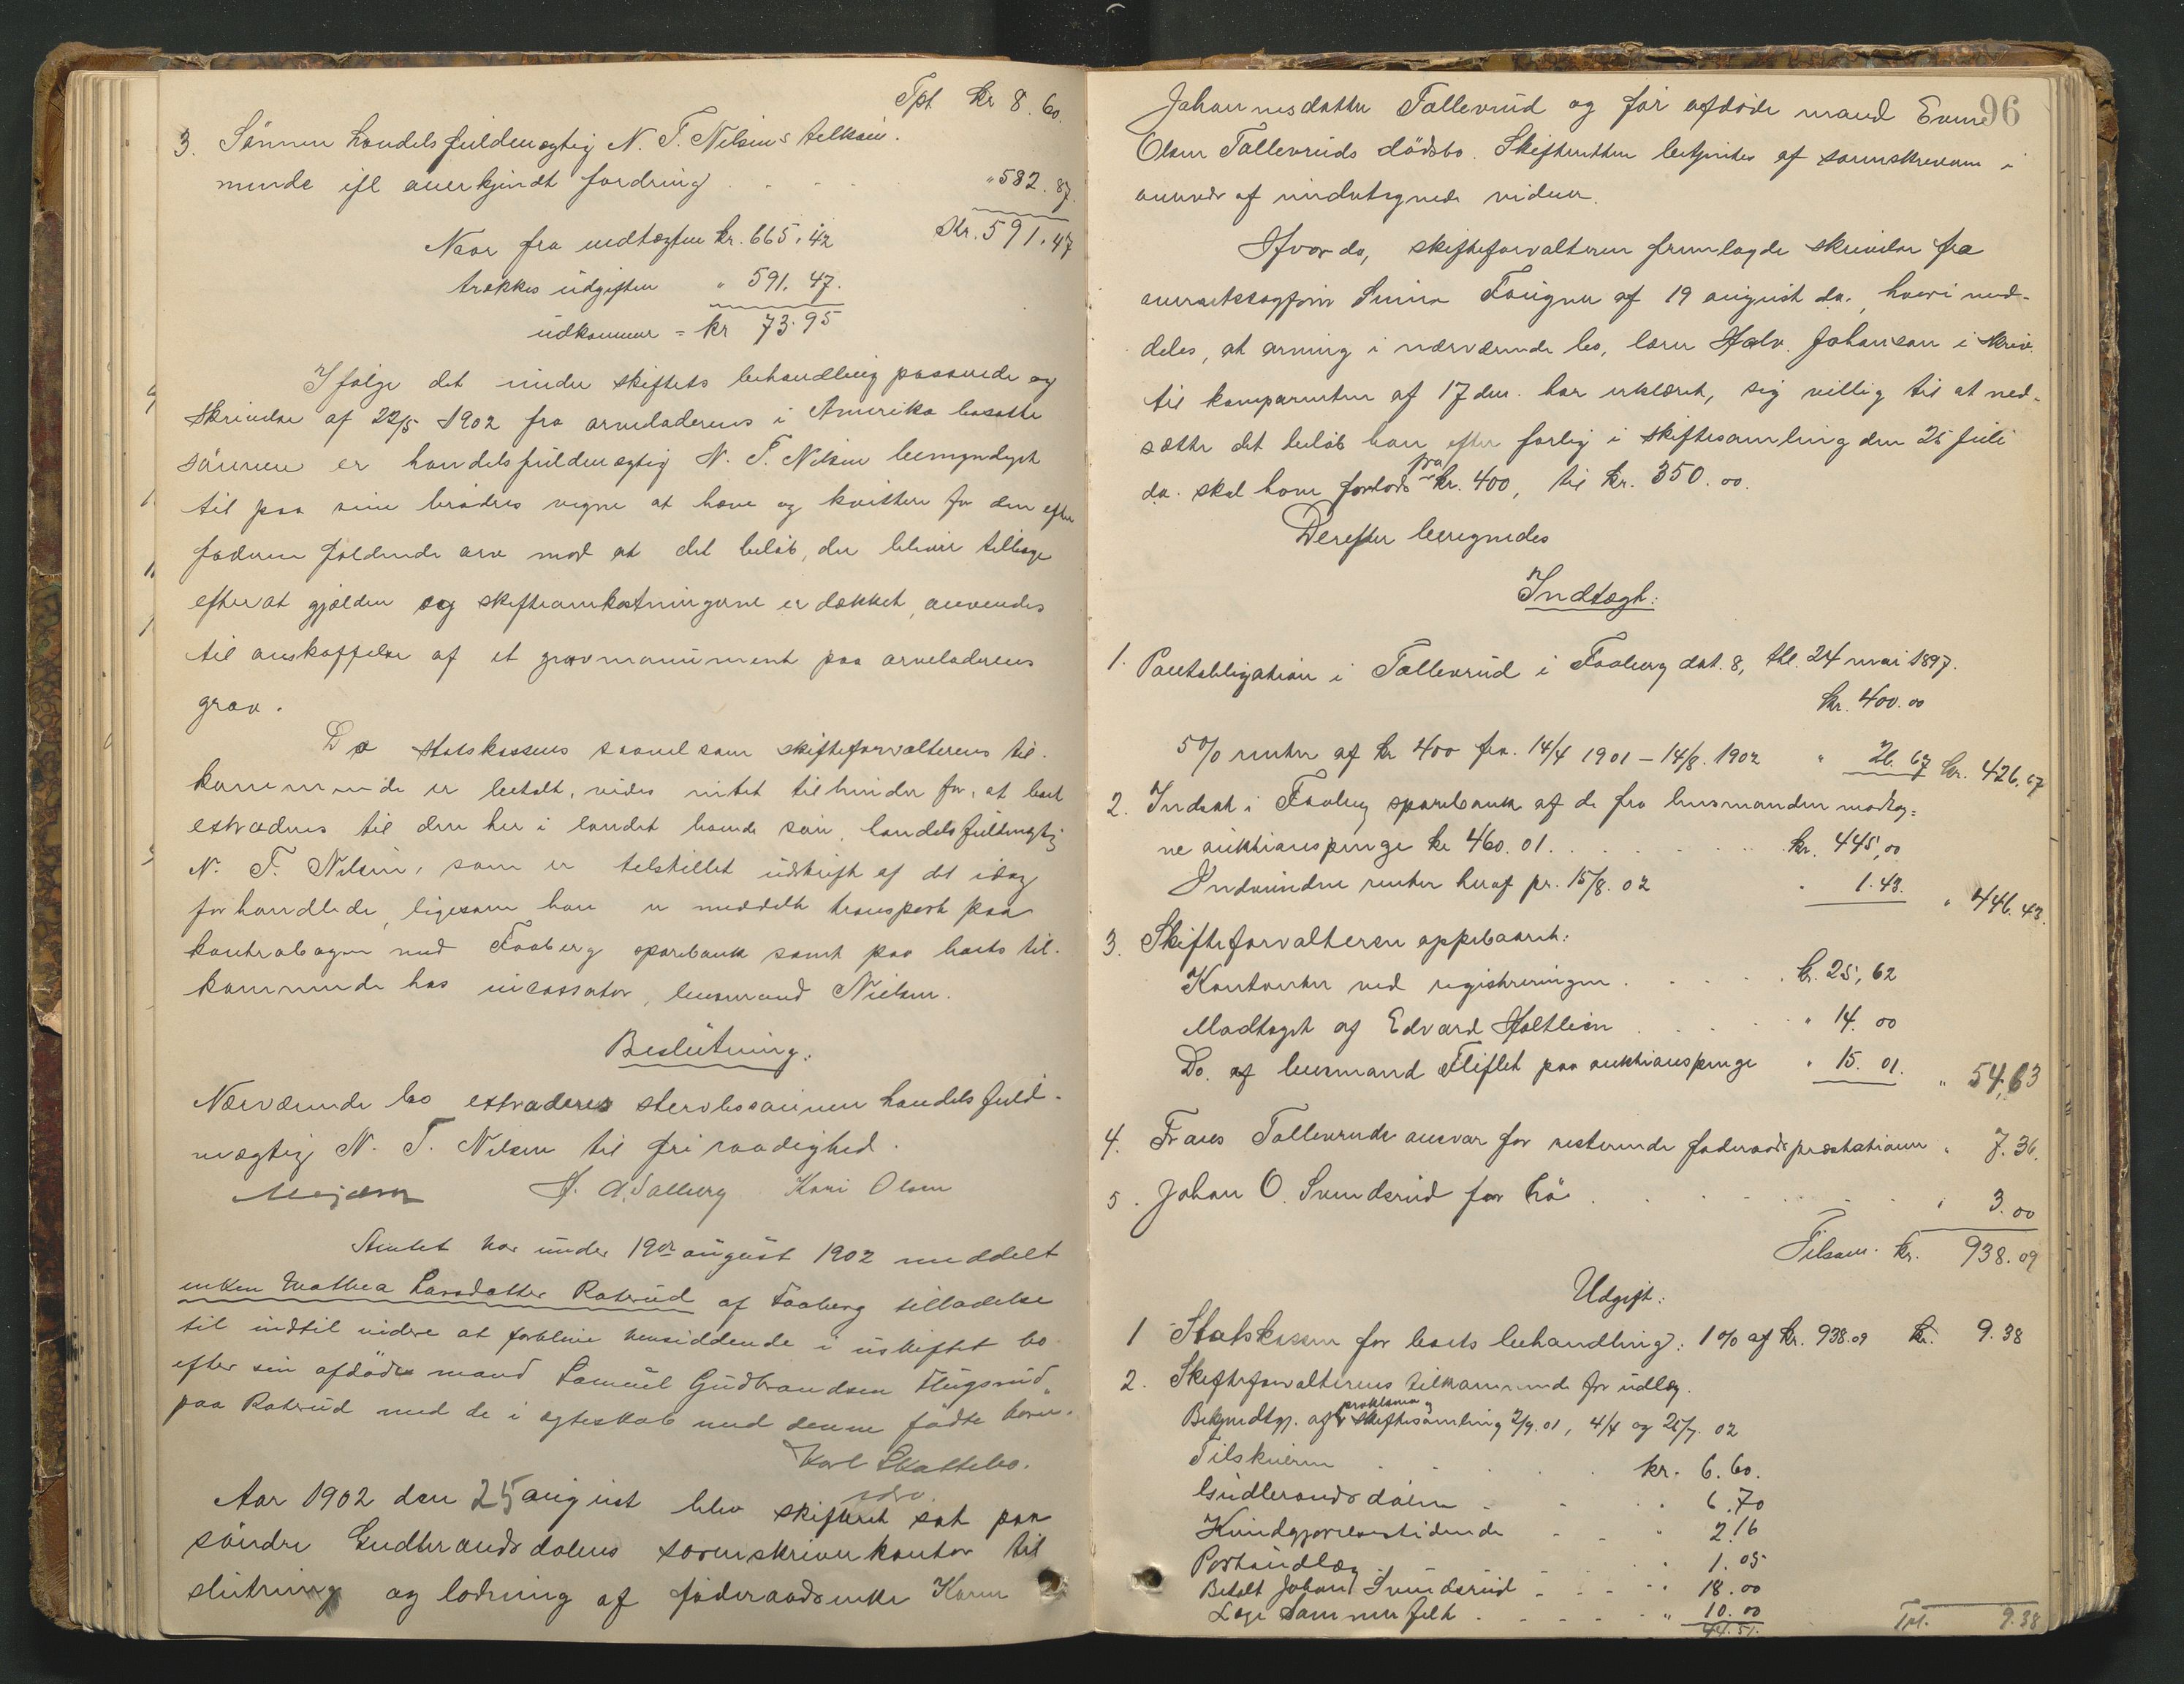 Tpt kr 8.60.
3. Sönnen handelsfuldmægtig N. T. Nilsens tilkom-
mende ifl anerkjendt fordring . . . " 582.87.
Naar fra indtægten kr. 665.42 Kr. 591.47
trækkes udgiften " 591.47.
udkommer = kr 73.95
Ifølge det under skiftets behandling passerede og
skrivelse af 22/5 1902 fra arveladerens i Amerika bosatte
sönner er handelsfuldmægtig N. T. Nilsen bemyndiget
til paa sine brödres vegne at hæve og kvittere for den efter
faderen faldende arv mod at det belöb, der bliver tilbage
efterat gjælden og skifteomkostningerne er dækket, anvendes
til anskaffelse af et gravmonument paa arveladerens
grav.
Da statskassens saavelsom skifteforvalterens til-
kommende er betalt, vides intet til hinder for, at boet
extraderes til den her i landet boende sön, handelsfuldmægtig
N. T. Nilsen, som er tilstillet udskrift af det idag
forhandlede, ligesom han er meddelt transport paa
kontrabogen med Faaberg sparebank samt paa boets til-
kommende hos incassator, lensmand Nielsen.
Beslutning:
Nærværende bo extraderes stervbosönnen handelsfuld-
mægtig N. T. Nilsen til fri raadighed.
Mejdell A. Dalberg Kari Olsen
Amtet har under 19de august 1902 meddelt
enken Mathea Larsdatter Roterud af Faaberg tilladelse
til indtil videre at forblive hensiddende i uskiftet bo
efter sin afdöde mand Samuel Gudbrandsen Flugsrud
paa Roterud med de i ægteskab med denne födte börn.
Karl Skattebo.
Aar 1902 den 25 august blev skifteret sat paa
söndre Gudbrandsdalens sorenskriverkontor til
slutning og lodning af föderaadsenke Karen
96
Johannesdatter Tollersrud og för afdöde mand Even
Olsen Tollersruds dödsbo. Skifteretten betjentes af sorenskriveren i
nærvær af undertegnede vidner.
Hvorda, skifteforvalteren fremlagde skrivelse fra
overretssagförer Simen Fougner af 19 august ds., hvori med-
deles, at arving i nærværende bo, lærer Halv. Johansen i skriv.
til komparenten af 17 ds. har erklæret, sig villig til at ned-
sætte det belöb han efter forlig i skiftesamling den 25 juli
ds. skal have forlods fra kr. 400, til kr. 350.00.
Derefter beregnedes
Indtægt:
1. Pantobligation i Tollersrud i Faaberg dat. 8, thl. 24 mai 1897.
kr. 400.00
5% renter af kr 400 fra 14/4 1901 – 14/8. 1902 " 26.67 kr. 426.67
2. Indsat i Faaberg sparebank af de fra lensmanden modtag-
ne auktionspenge kr 460.01. . . . kr. 445,00
Indvundne renter heraf pr. 15/8. 02 " 1.43. " 446.43.
3. Skifteforvalteren oppebaaret:
Kontanter ved registreringen . . . kr. 25,62
Modtaget af Edvard Holtlien . . . " 14.00
Do. af lensmand Fliflet paa auktionspenge " 15.01. " 54,63
4. Frans Tollersruds ansvar for resterende föderaadspræstationer " 7.36.
5. Johan O. Svendsrud for hö . . . " 3.00
Tilsam. kr. 938.09
Udgift:
1 Statskassen for boets behandling: 1% af kr. 938.09 kr. 9.38
2. Skifteforvalterens tilkommende for udlæg.
Bekjendtgj. af proklama og skiftesamling 2/9.01, 4/4 og 25/7. 02
Tilskueren . . . kr. 6.60.
Gudbrandsdölen . . " 6.70
Kundgjörelsestidende . . " 2.16
Portoudlæg . . " 1.05
Betalt Johan Svendsrud . . " 18.00
Læge Sommerfelt . . . " 10.00
44.51. Tpt. 9.38